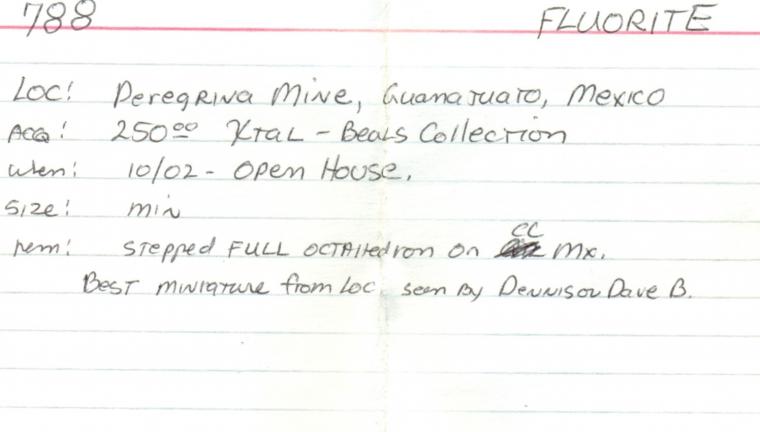 788 FLUORITE
Loc: Peregrina Mine, Guanajuato, Mexico
Acq: 250.00 Xtal - Beals Collection
When: 10/02 - Open House.
Size: min
Rem: Stepped FULL OCTAHedron on CC Mx.
BEST miniature from Loc. seen by Dennis or Dave B.